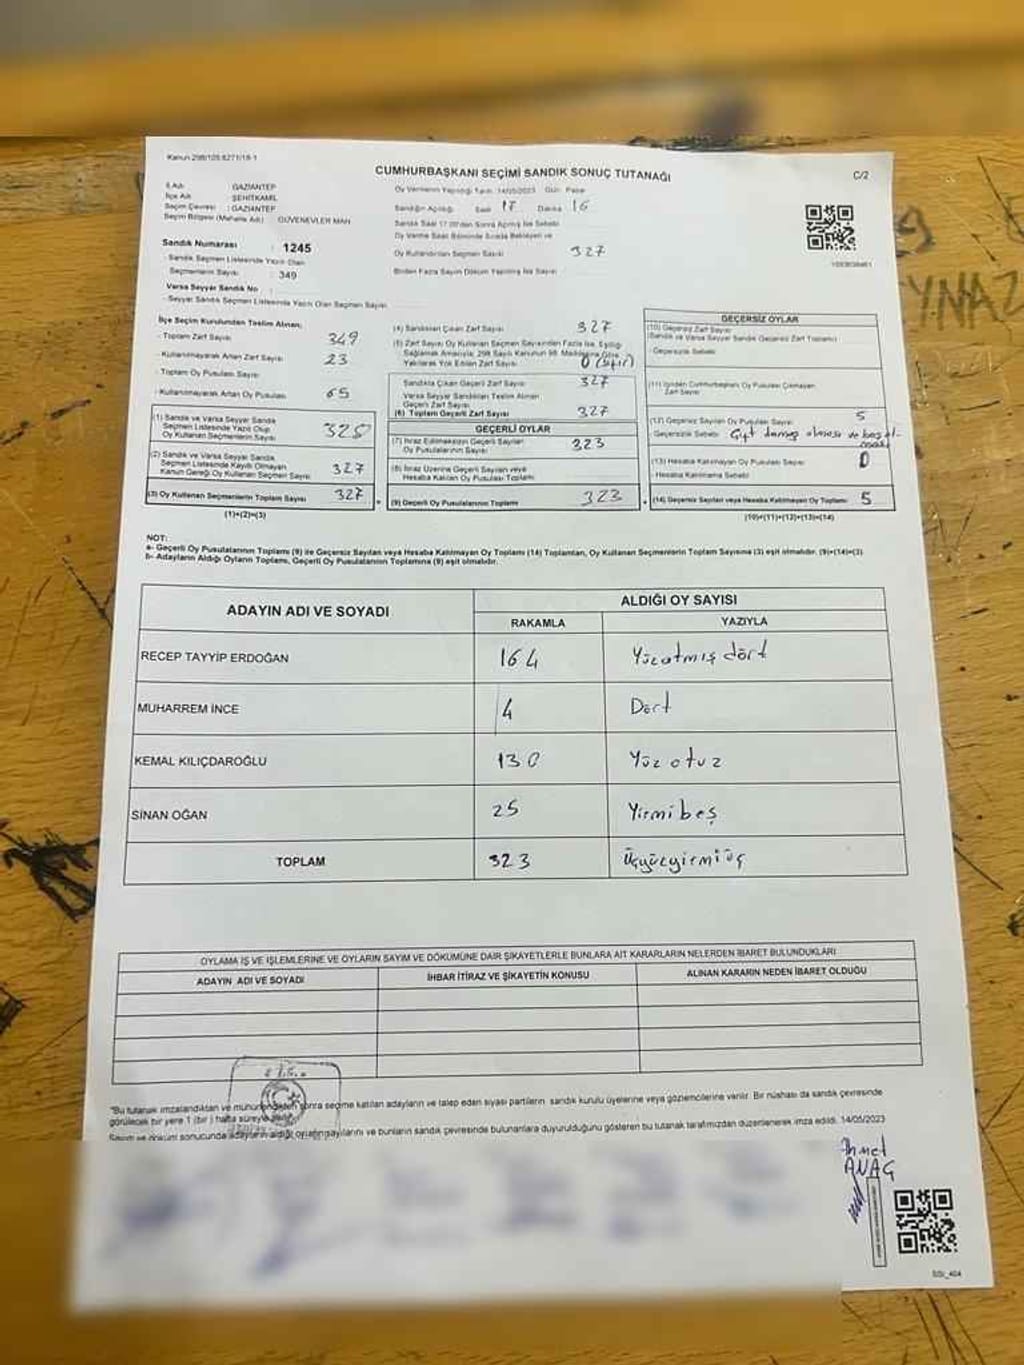 Kanun 298/105.6271/18-1
CUMHURBAŞKANI SEÇİMİ SANDIK SONUÇ TUTANAĞI
C/2
İl Adı : GAZİANTEP
İlçe Adı : ŞEHİTKAMİL
Seçim Çevresi : GAZİANTEP
Seçim Bölgesi (Mahalle Adı) : GÜVENEVLER MAH
Sandık Numarası : 1245
Sandık Seçmen Listesinde Yazılı Olan
Seçmenlerin Sayısı : 349
Varsa Seyyar Sandık No :
Seyyar Sandık Seçmen Listesinde Yazılı Olan Seçmen Sayısı
Oy Vermenin Yapıldığı Tarih: 14/05/2023 Gün: Pazar
Sandığın Açıldığı Saat 17 Dakika 16
Sandık Saat 17.00'den Sonra Açılmış İse Sebebi
Oy Verme Saati Bitiminde Sırada Bekleyen ve
Oy Kullandırılan Seçmen Sayısı 327
Birden Fazla Sayım Döküm Yapılmış İse Sayısı
İlçe Seçim Kurulundan Teslim Alınan:
- Toplam Zarf Sayısı 349
- Kullanılmayarak Artan Zarf Sayısı 23
- Toplam Oy Pusulası Sayısı
- Kullanılmayarak Artan Oy Pusulası 65
(1) Sandık ve Varsa Seyyar Sandık
Seçmen Listesinde Yazılı Olup
Oy Kullanan Seçmenlerin Sayısı 325
(2) Sandık ve Varsa Seyyar Sandık
Seçmen Listesinde Kayıtlı Olmayan
Kanun Gereği Oy Kullanan Seçmen Sayısı 327
(3) Oy Kullanan Seçmenlerin Toplam Sayısı 327
(1)+(2)=(3)
(4) Sandıktan Çıkan Zarf Sayısı 327
(5) Zarf Sayısı Oy Kullanan Seçmen Sayısından Fazla İse, Eşitliği
Sağlamak Amacıyla; 298 Sayılı Kanunun 98. Maddesine Göre
Yakılarak Yok Edilen Zarf Sayısı 0 (sıfır)
Sandıkta Çıkan Geçerli Zarf Sayısı 327
Varsa Seyyar Sandıktan Teslim Alınan
Geçerli Zarf Sayısı
(6) Toplam Geçerli Zarf Sayısı 327
GEÇERLİ OYLAR
(7) İtiraz Edilmeksizin Geçerli Sayılan
Oy Pusulalarının Sayısı 323
(8) İtiraz Üzerine Geçerli Sayılan veya
Hesaba Katılan Oy Pusulası Toplamı
(9) Geçerli Oy Pusulalarının Toplamı 323
GEÇERSİZ OYLAR
(10) Geçersiz Zarf Sayısı
(Sandık ve Varsa Seyyar Sandık Geçersiz Zarf Toplamı)
- Geçersizlik Sebebi
(11) İçinden Cumhurbaşkanı Oy Pusulası Çıkmayan
Zarf Sayısı
(12) Geçersiz Sayılan Oy Pusulası Sayısı 5
- Geçersizlik Sebebi Çift damga olması ve boş olması
(13) Hesaba Katılmayan Oy Pusulası Sayısı 0
- Hesaba Katılmama Sebebi
(14) Geçersiz Sayılan veya Hesaba Katılmayan Oy Toplamı 5
(10)+(11)+(12)+(13)=(14)
NOT:
a- Geçerli Oy Pusulalarının Toplamı (9) ile Geçersiz Sayılan veya Hesaba Katılmayan Oy Toplamı (14) Toplamları, Oy Kullanan Seçmenlerin Toplam Sayısına (3) eşit olmalıdır. (9)+(14)=(3)
b- Adayların Aldığı Oyların Toplamı, Geçerli Oy Pusulalarının Toplamına (9) eşit olmalıdır.
ADAYIN ADI VE SOYADI ALDIĞI OY SAYISI
RAKAMLA YAZIYLA
RECEP TAYYİP ERDOĞAN 164 Yüzatmış dört
MUHARREM İNCE 4 Dört
KEMAL KILIÇDAROĞLU 130 Yüz otuz
SİNAN OĞAN 25 Yirmibeş
TOPLAM 323 Üçyüzyirmiüç
OYLAMA İŞ VE İŞLEMLERİNE VE OYLARIN SAYIM VE DÖKÜMÜNE DAİR ŞİKAYETLERLE BUNLARA AİT KARARLARIN NELERDEN İBARET BULUNDUKLARI
ADAYIN ADI VE SOYADI İHBAR İTİRAZ VE ŞİKAYETİN KONUSU ALINAN KARARIN NEDEN İBARET OLDUĞU
"Bu tutanak imzalandıktan ve mühürlendikten sonra seçime katılan adayların ve talep eden siyasi partilerin sandık kurulu üyelerine veya gözlemcilerine verilir. Bir nüshası da sandık çevresinde
görülecek bir yere 1 (bir) hafta süreyle
Sayım ve döküm sonucunda adayların aldığı oyların sayılarını ve bunların sandık çevresinde bulunanlara duyurulduğunu gösteren bu tutanak tarafımızdan düzenlenerek imza edildi. 14/05/2023
Ahmet
ANAÇ